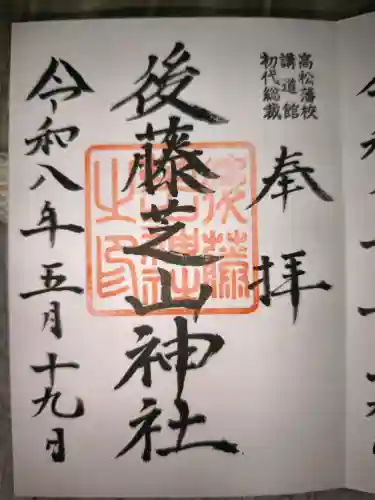 高松藩校
講道館
初代総裁
奉拝
後藤芝山神社
令和八年五月十九日